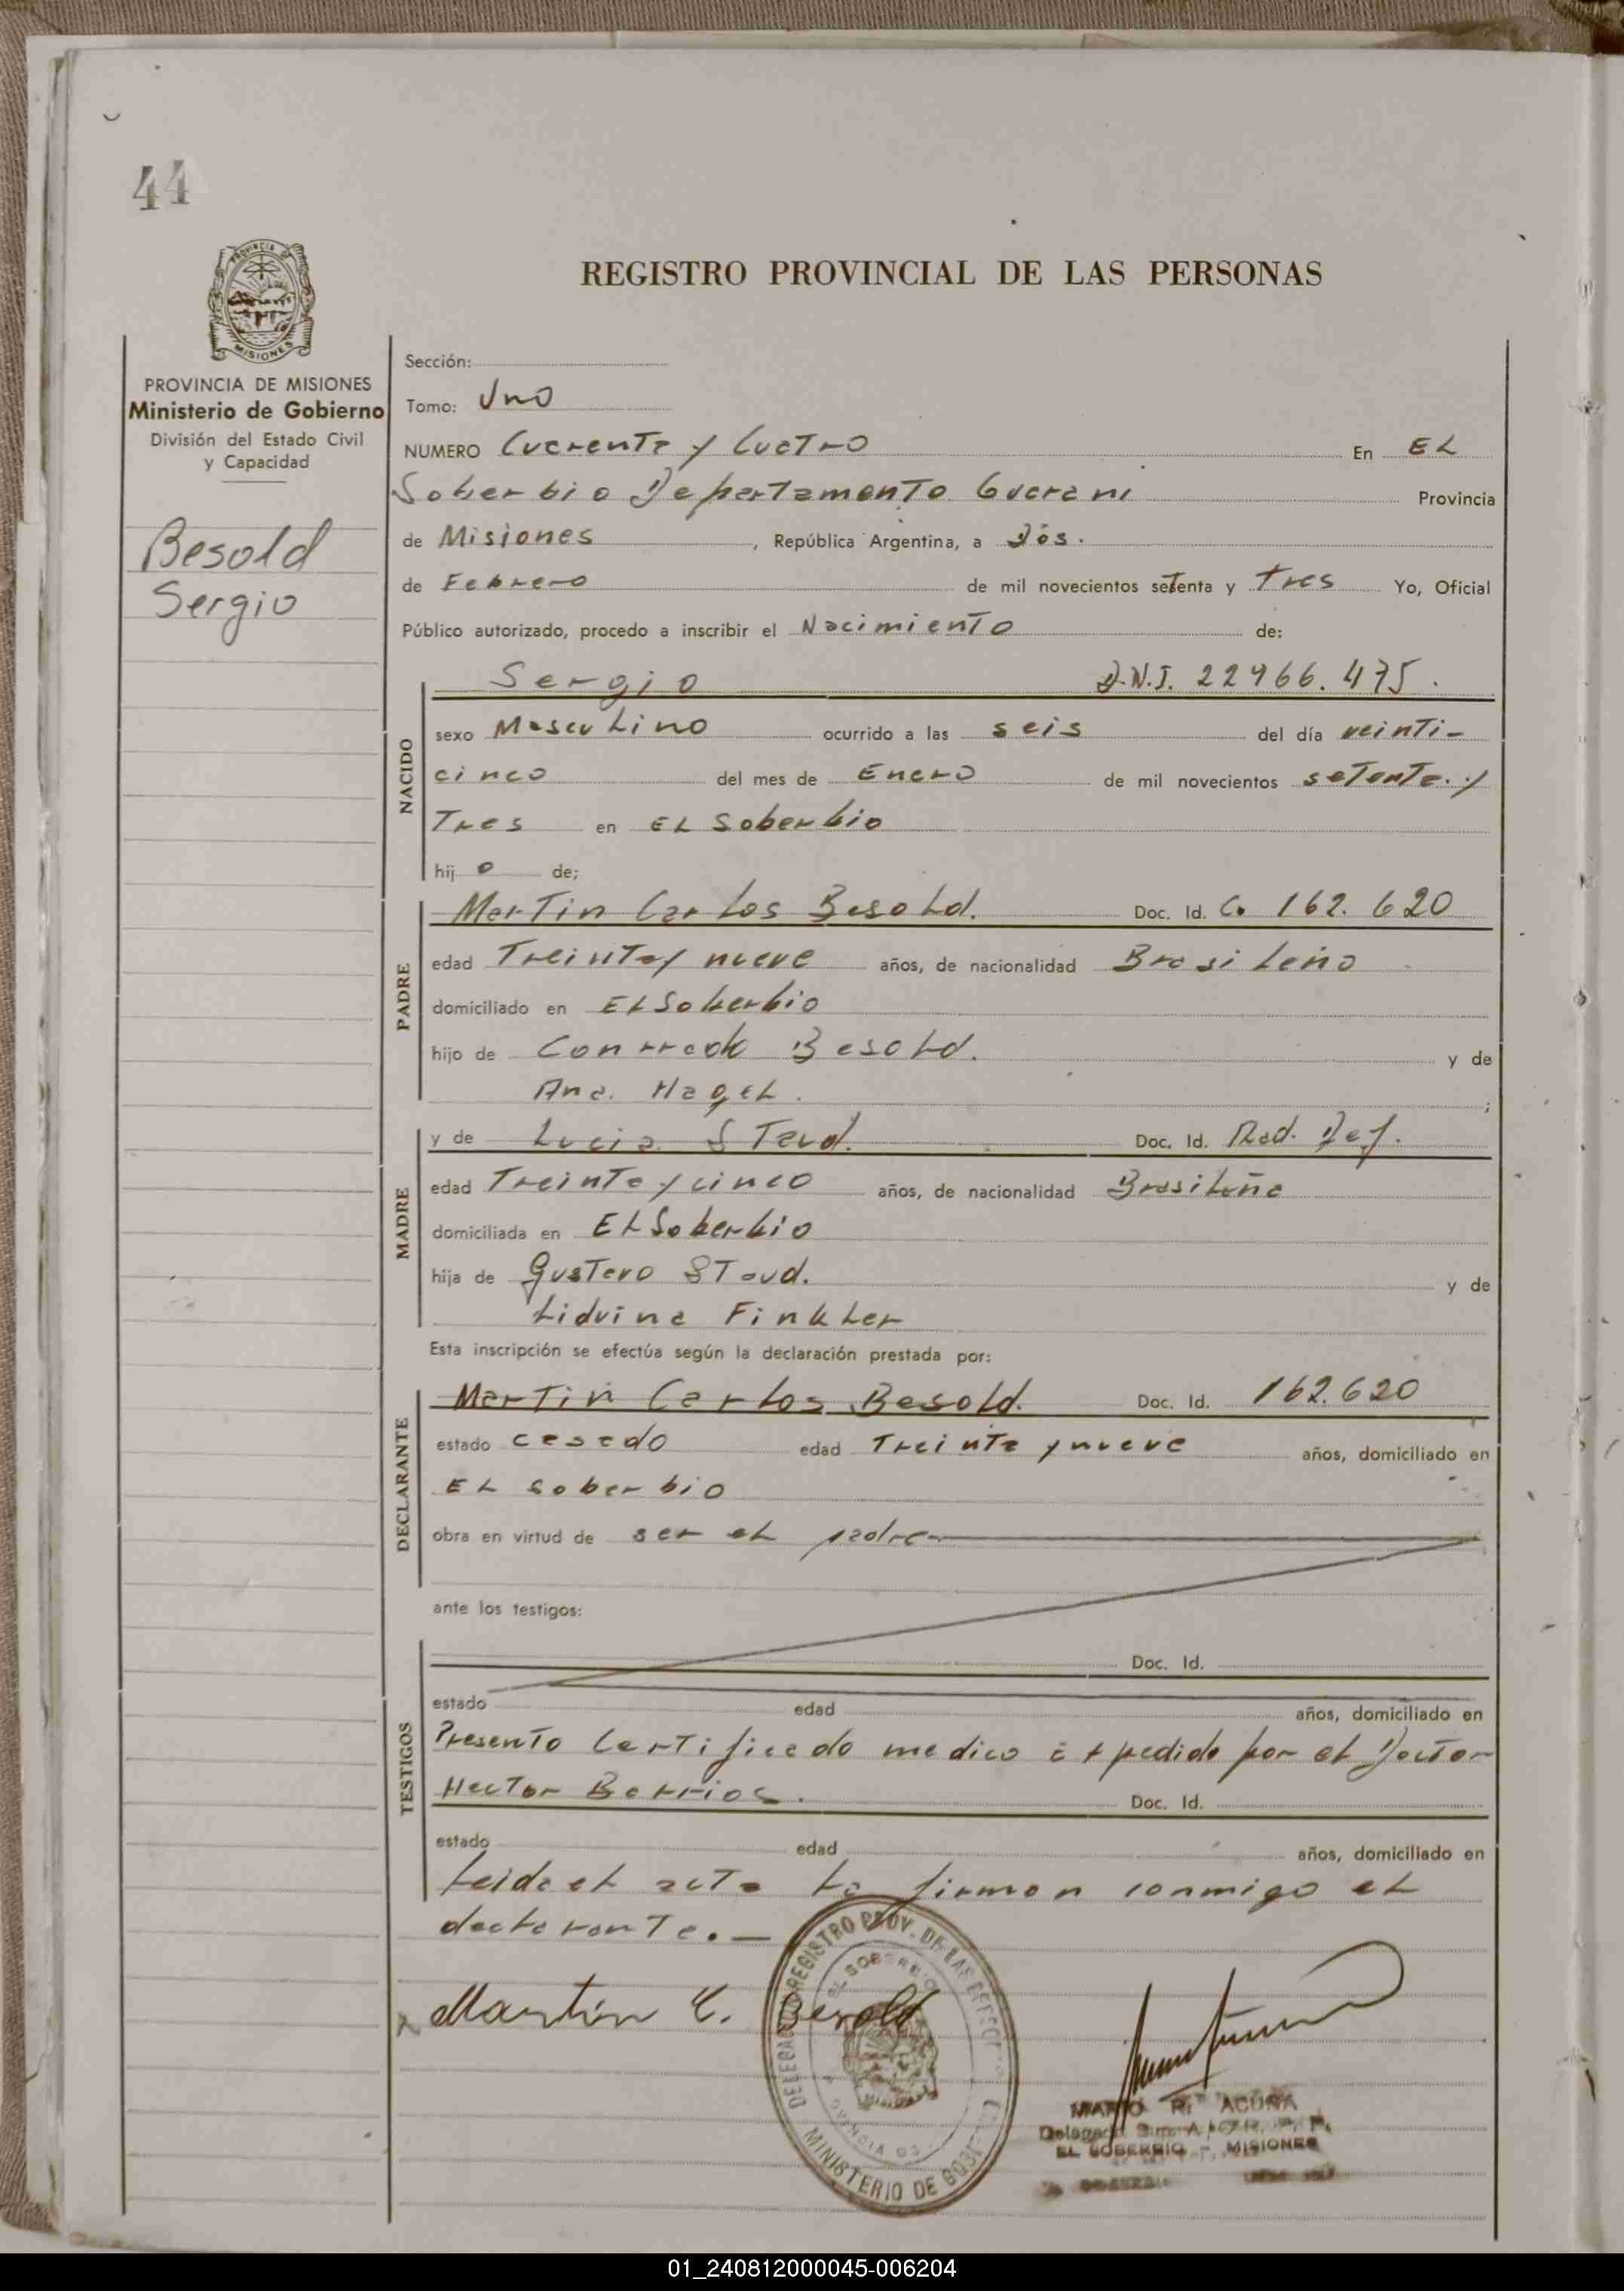 44
REGISTRO PROVINCIAL DE LAS PERSONAS
PROVINCIA DE MISIONES
Ministerio de Gobierno
División del Estado Civil
y Capacidad
Besold
Sergio
Sección:
Tomo: Uno
NUMERO Cuarenta y Cuatro En EL
Soberbio Departamento Guarani Provincia
de Misiones, República Argentina, a Dós.
de Febrero de mil novecientos setenta y tres Yo, Oficial
Público autorizado, procedo a inscribir el Nacimiento de:
Sergio D.N.I. 22966.475.
NACIDO
sexo Masculino ocurrido a las seis del día veinti-
cinco del mes de Enero de mil novecientos setenta y
Tres en EL Soberbio
hijo de;
PADRE
Martin Carlos Besold. Doc. Id. C. 162.620
edad Treinta y nueve años, de nacionalidad Brasileño
domiciliado en EL Soberbio
hijo de Conrrado Besold. y de
Ana. Hagel. ;
MADRE
y de Lucia Staud. Doc. Id. Rad. Def.
edad Treinta y cinco años, de nacionalidad Brasileña
domiciliada en EL Soberbio
hija de Gustavo Staud. y de
Lidvina Finkler
Esta inscripción se efectúa según la declaración prestada por:
DECLARANTE
Martin Carlos Besold. Doc. Id. 162.620
estado casado edad Treinta y nueve años, domiciliado en
EL Soberbio
obra en virtud de ser el padre
ante los testigos:
TESTIGOS
Doc. Id.
estado edad años, domiciliado en
Presento Certificado medico expedido por el Doctor
Hector Barrios. Doc. Id.
estado edad años, domiciliado en
Leida el acta la firman conmigo el
declarante.—
Martín C. Besold
REGISTRO PROV. DE LAS
EL SOBERBIO
MINISTERIO DE GOB
MARIO R. ACUÑA
EL SOBERBIO - MISIONES
01_240812000045-006204